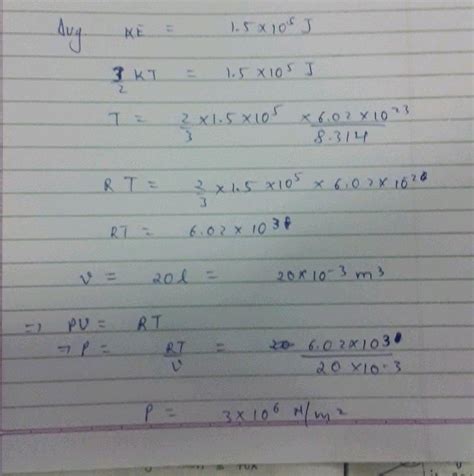 Avg KE = 1.5 × 10⁵ J
3/2 KT = 1.5 × 10⁵ J
T = 2/3 × 1.5 × 10⁵ × 6.02 × 10²³ / 8.314
RT = 2/3 × 1.5 × 10⁵ × 6.02 × 10²⁶
RT = 6.02 × 10³⁰
v = 20l = 20 × 10⁻³ m³
⇒ PV = RT
⇒ P = RT/V = 6.02 × 10³⁰ / 20 × 10⁻³
P = 3 × 10⁶ N/m²